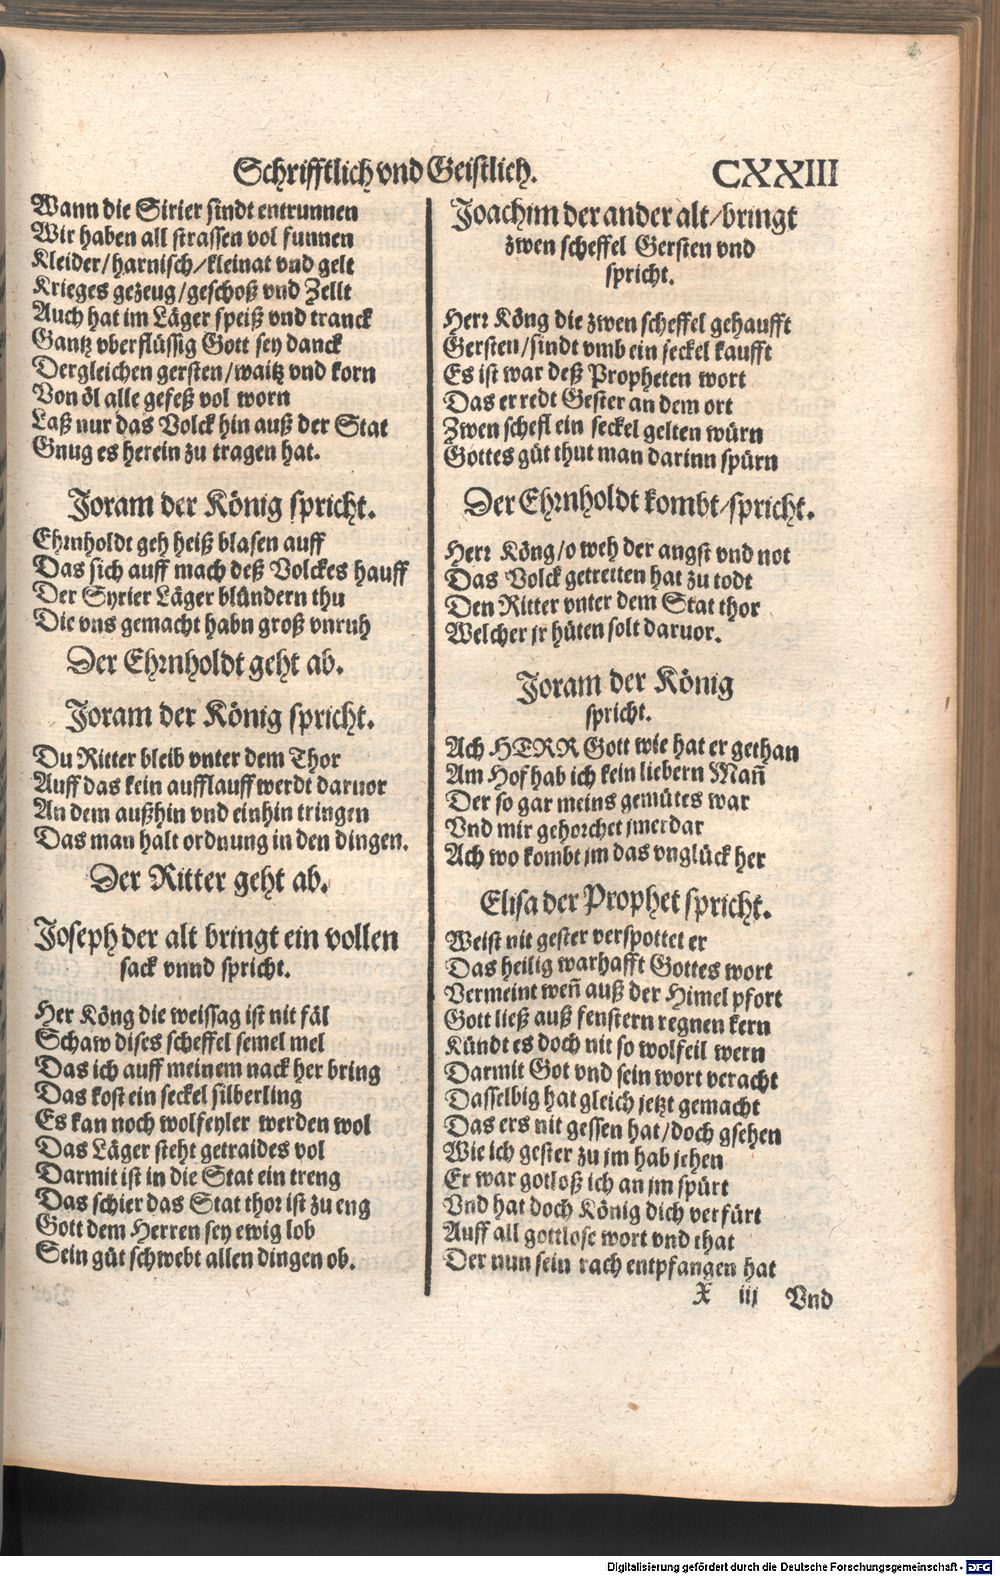 Schrifftlich vnd Geistlich.
CXXIII
Wann die Sirier sindt entrunnen
Wir haben all strassen vol funnen
Kleider/harnisch/kleinat vnd gelt
Krieges gezeug/geschoß vnd Zellt
Auch hat im Läger speiß vnd tranck
Gantz vberflüssig Gott sey danck
Dergleichen gersten/waitz vnd korn
Von öl alle gefeß vol worn
Laß nur das Volck hin auß der Stat
Gnug es herein zu tragen hat.
Joram der König spricht.
Ehrnholdt geh heiß blasen auff
Das sich auff mach deß Volckes hauff
Der Syrier Läger blündern thu
Die vns gemacht habn groß vnruh
Der Ehrnholdt geht ab.
Joram der König spricht.
Du Ritter bleib vnter dem Thor
Auff das kein aufflauff werdt daruor
An dem außhin vnd einhin tringen
Das man halt ordnung in den dingen.
Der Ritter geht ab.
Joseph der alt bringt ein vollen
sack vnnd spricht.
Her Köng die weissag ist nit fäl
Schaw dises scheffel semel mel
Das ich auff meinem nack her bring
Das kost ein seckel silberling
Es kan noch wolfeyler werden wol
Das Läger steht getraides vol
Darmit ist in die Stat ein treng
Das schier das Stat thor ist zu eng
Gott dem Herren sey ewig lob
Sein güt schwebt allen dingen ob.
Joachim der ander alt/bringt
zwen scheffel Gersten vnd
spricht.
Herr Köng die zwen scheffel gehaufft
Gersten/sindt vmb ein seckel kaufft
Es ist war deß Propheten wort
Das er redt Gester an dem ort
Zwen schefl ein seckel gelten würn
Gottes güt thut man darinn spürn
Der Ehrnholdt kombt/spricht.
Herr Köng/o weh der angst vnd not
Das Volck getretten hat zu todt
Den Ritter vnter dem Stat thor
Welcher jr hüten solt daruor.
Joram der König
spricht.
Ach HERR Gott wie hat er gethan
Am Hof hab ich kein liebern Mañ
Der so gar meins gemütes war
Vnd mir gehorchet jmerdar
Ach wo kombt jm das vnglück her
Elisa der Prophet spricht.
Weist nit gester verspottet er
Das heilig warhafft Gottes wort
Vermeint weñ auß der Himel pfort
Gott ließ auß fenstern regnen kern
Kündt es doch nit so wolfeil wern
Darmit Got vnd sein wort veracht
Dasselbig hat gleich jetzt gemacht
Das ers nit gessen hat/doch gsehen
Wie ich gester zu jm hab jehen
Er war gotloß ich an jm spürt
Vnd hat doch König dich verfürt
Auff all gottlose wort vnd that
Der nun sein rach entpfangen hat
X iij Vnd
Digitalisierung gefördert durch die Deutsche Forschungsgemeinschaft - DFG